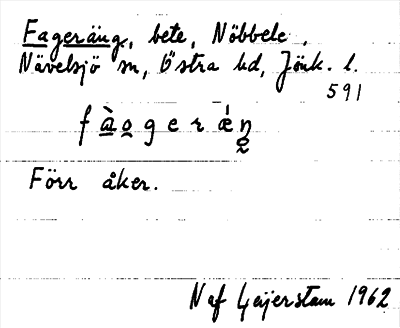 Fageräng, bete, Nöbbele,
Nävelsjö sn, Östra hd, Jönk. l.
591
fàogerǽŋ
Förr åker.
N af Geijerstam 1962